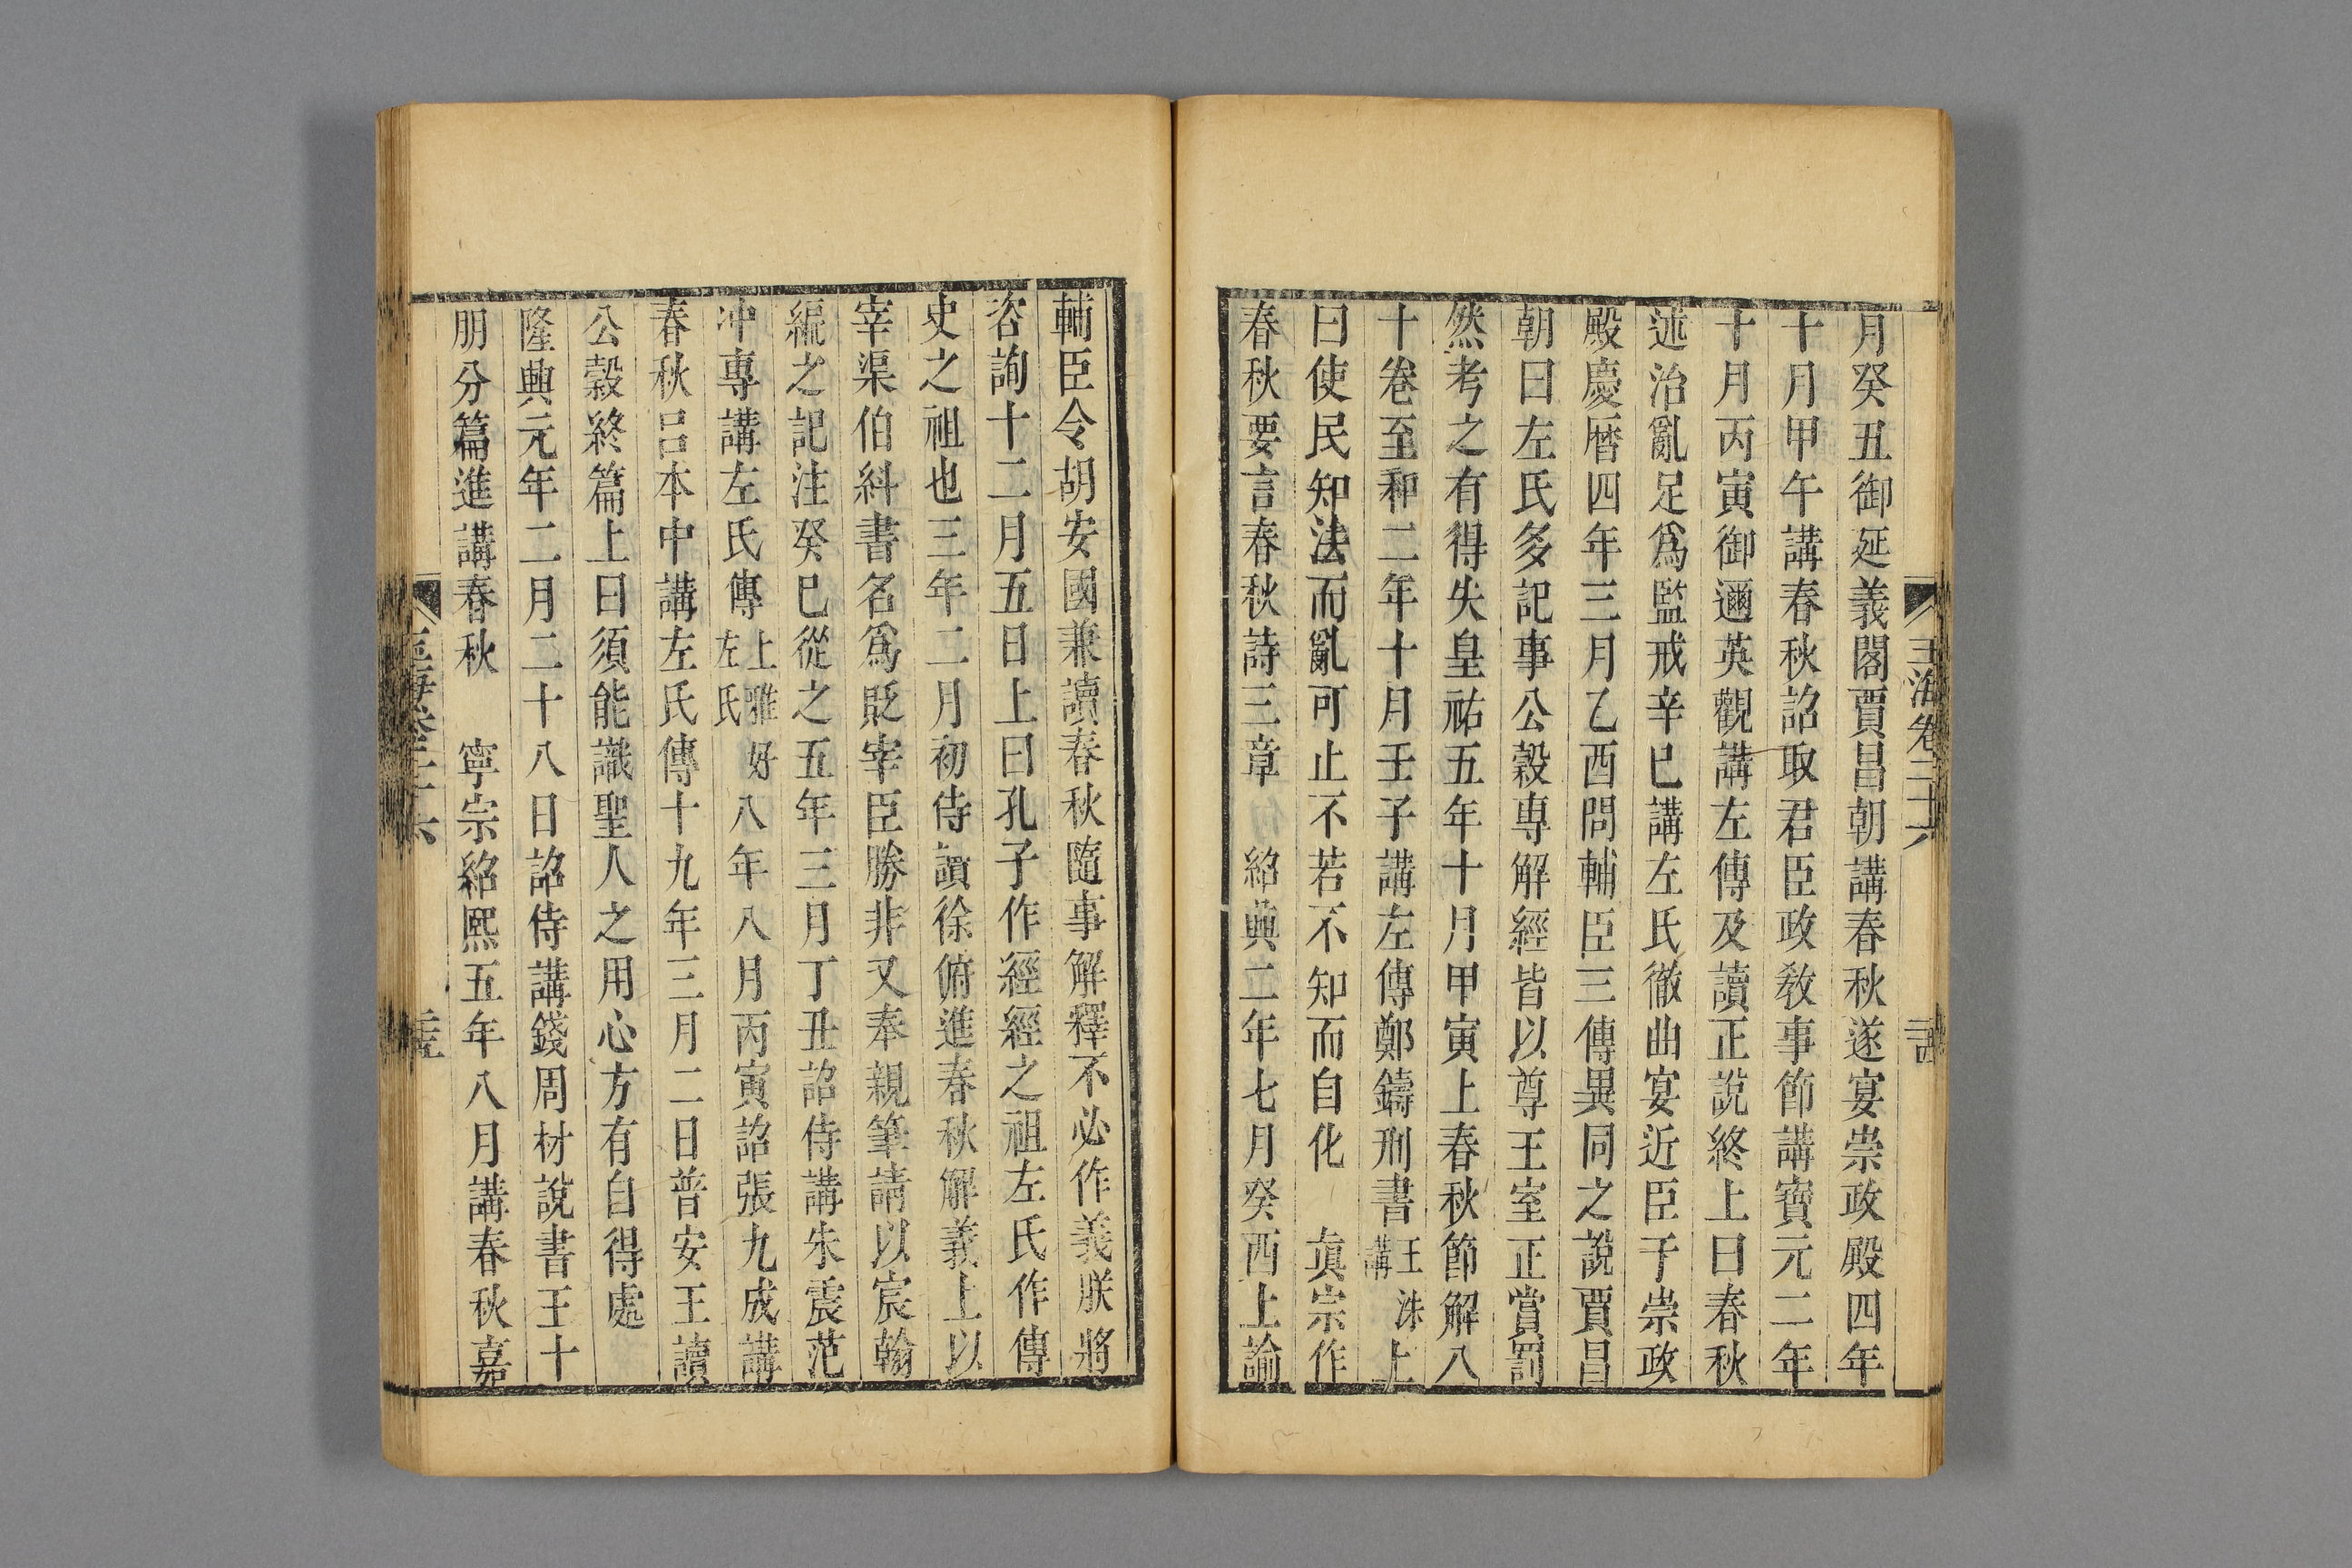 玉海卷二十六
月癸丑御延義閣賈昌朝講春秋遂宴崇政殿四年
十月甲午講春秋詔取君臣政敎事節講寶元二年
十月丙寅御邇英觀講左傳及讀正說終上曰春秋
述治亂足爲監戒辛巳講左氏徹曲宴近臣于崇政
殿慶曆四年三月乙酉問輔臣三傳異同之說賈昌
朝曰左氏多記事公穀專解經皆以尊王室正賞罰
然考之有得失皇祐五年十月甲寅上春秋節解八
十卷至和二年十月壬子講左傳鄭鑄刑書王洙講上
曰使民知法而亂可止不若不知而自化　眞宗作
春秋要言春秋詩三章　紹興二年七月癸酉上諭
輔臣令胡安國兼讀春秋隨事解釋不必作義朕將
咨詢十二月五日上曰孔子作經經之祖左氏作傳
史之祖也三年二月初侍讀徐俯進春秋解義上以
宰渠伯糾書名爲貶宰臣勝非又奉親筆請以宸翰
編之記注癸巳從之五年三月丁丑詔侍講朱震范
冲專講左氏傳上雅好左氏八年八月丙寅詔張九成講
春秋呂本中講左氏傳十九年三月二日普安王讀
公穀終篇上曰須能識聖人之用心方有自得處
隆興元年二月二十八日詔侍講錢周材說書王十
朋分篇進講春秋　寧宗紹熙五年八月講春秋嘉